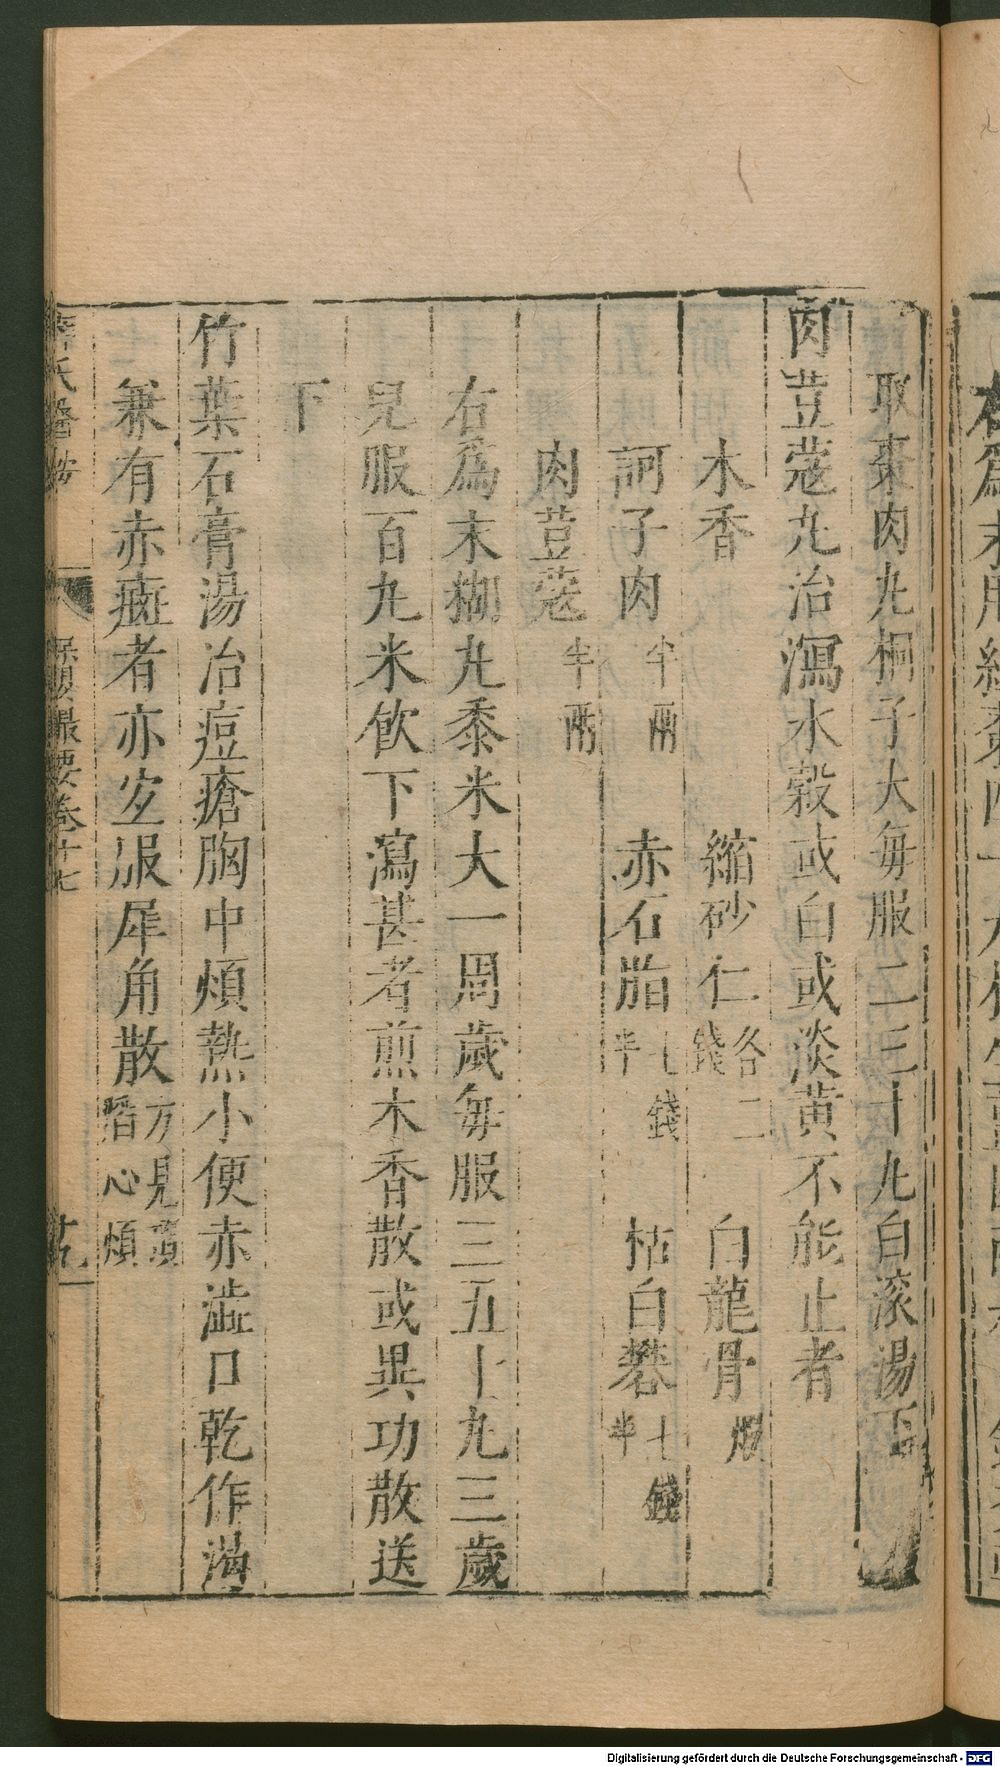 取棗肉丸桐子大每服二三十丸白滾湯下
肉荳蔻丸治瀉水穀或白或淡黃不能止者
木香 縮砂仁各二錢 白龍骨煅
訶子肉半兩 赤石脂七錢半 枯白礬七錢半
肉荳蔻半兩
右爲末糊丸黍米大一周歲每服三五十丸三歲
兒服百丸米飲下瀉甚者煎木香散或異功散送
下
竹葉石膏湯治痘瘡胸中煩熱小便赤澁口乾作渴
兼有赤癍者亦宜服犀角散方見嚏心煩
氏醫按 保嬰撮要卷十七
Digitalisierung gefördert durch die Deutsche Forschungsgemeinschaft - DFG